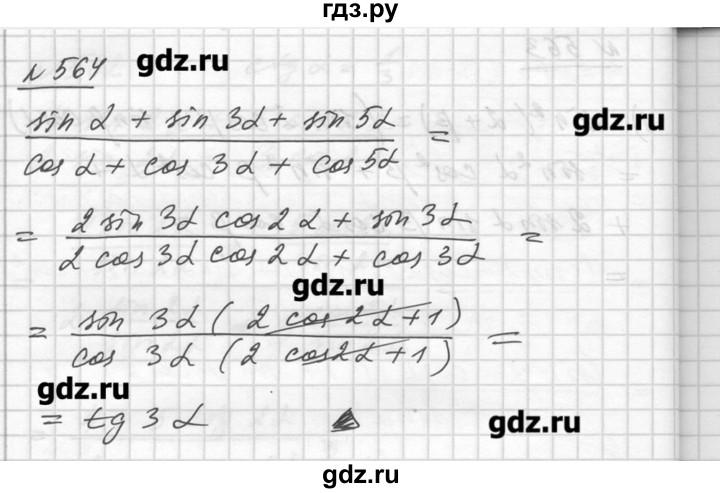 гдз.ру
№ 564
gdz.ru
sin α + sin 3α + sin 5α
gdz.ru
=
cos α + cos 3α + cos 5α
= 2 sin 3α cos 2α + sin 3α =
2 cos 3α cos 2α + cos 3α
gdz.ru
= sin 3α ( 2 cos 2α + 1 ) =
cos 3α ( 2 cos 2α + 1 )
gdz.ru
= tg 3α
gdz.ru
gdz.ru